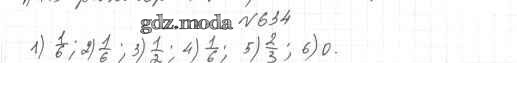 gdz.moda №634
1) 1/6; 2) 1/6; 3) 1/2; 4) 1/6; 5) 2/3; 6) 0.